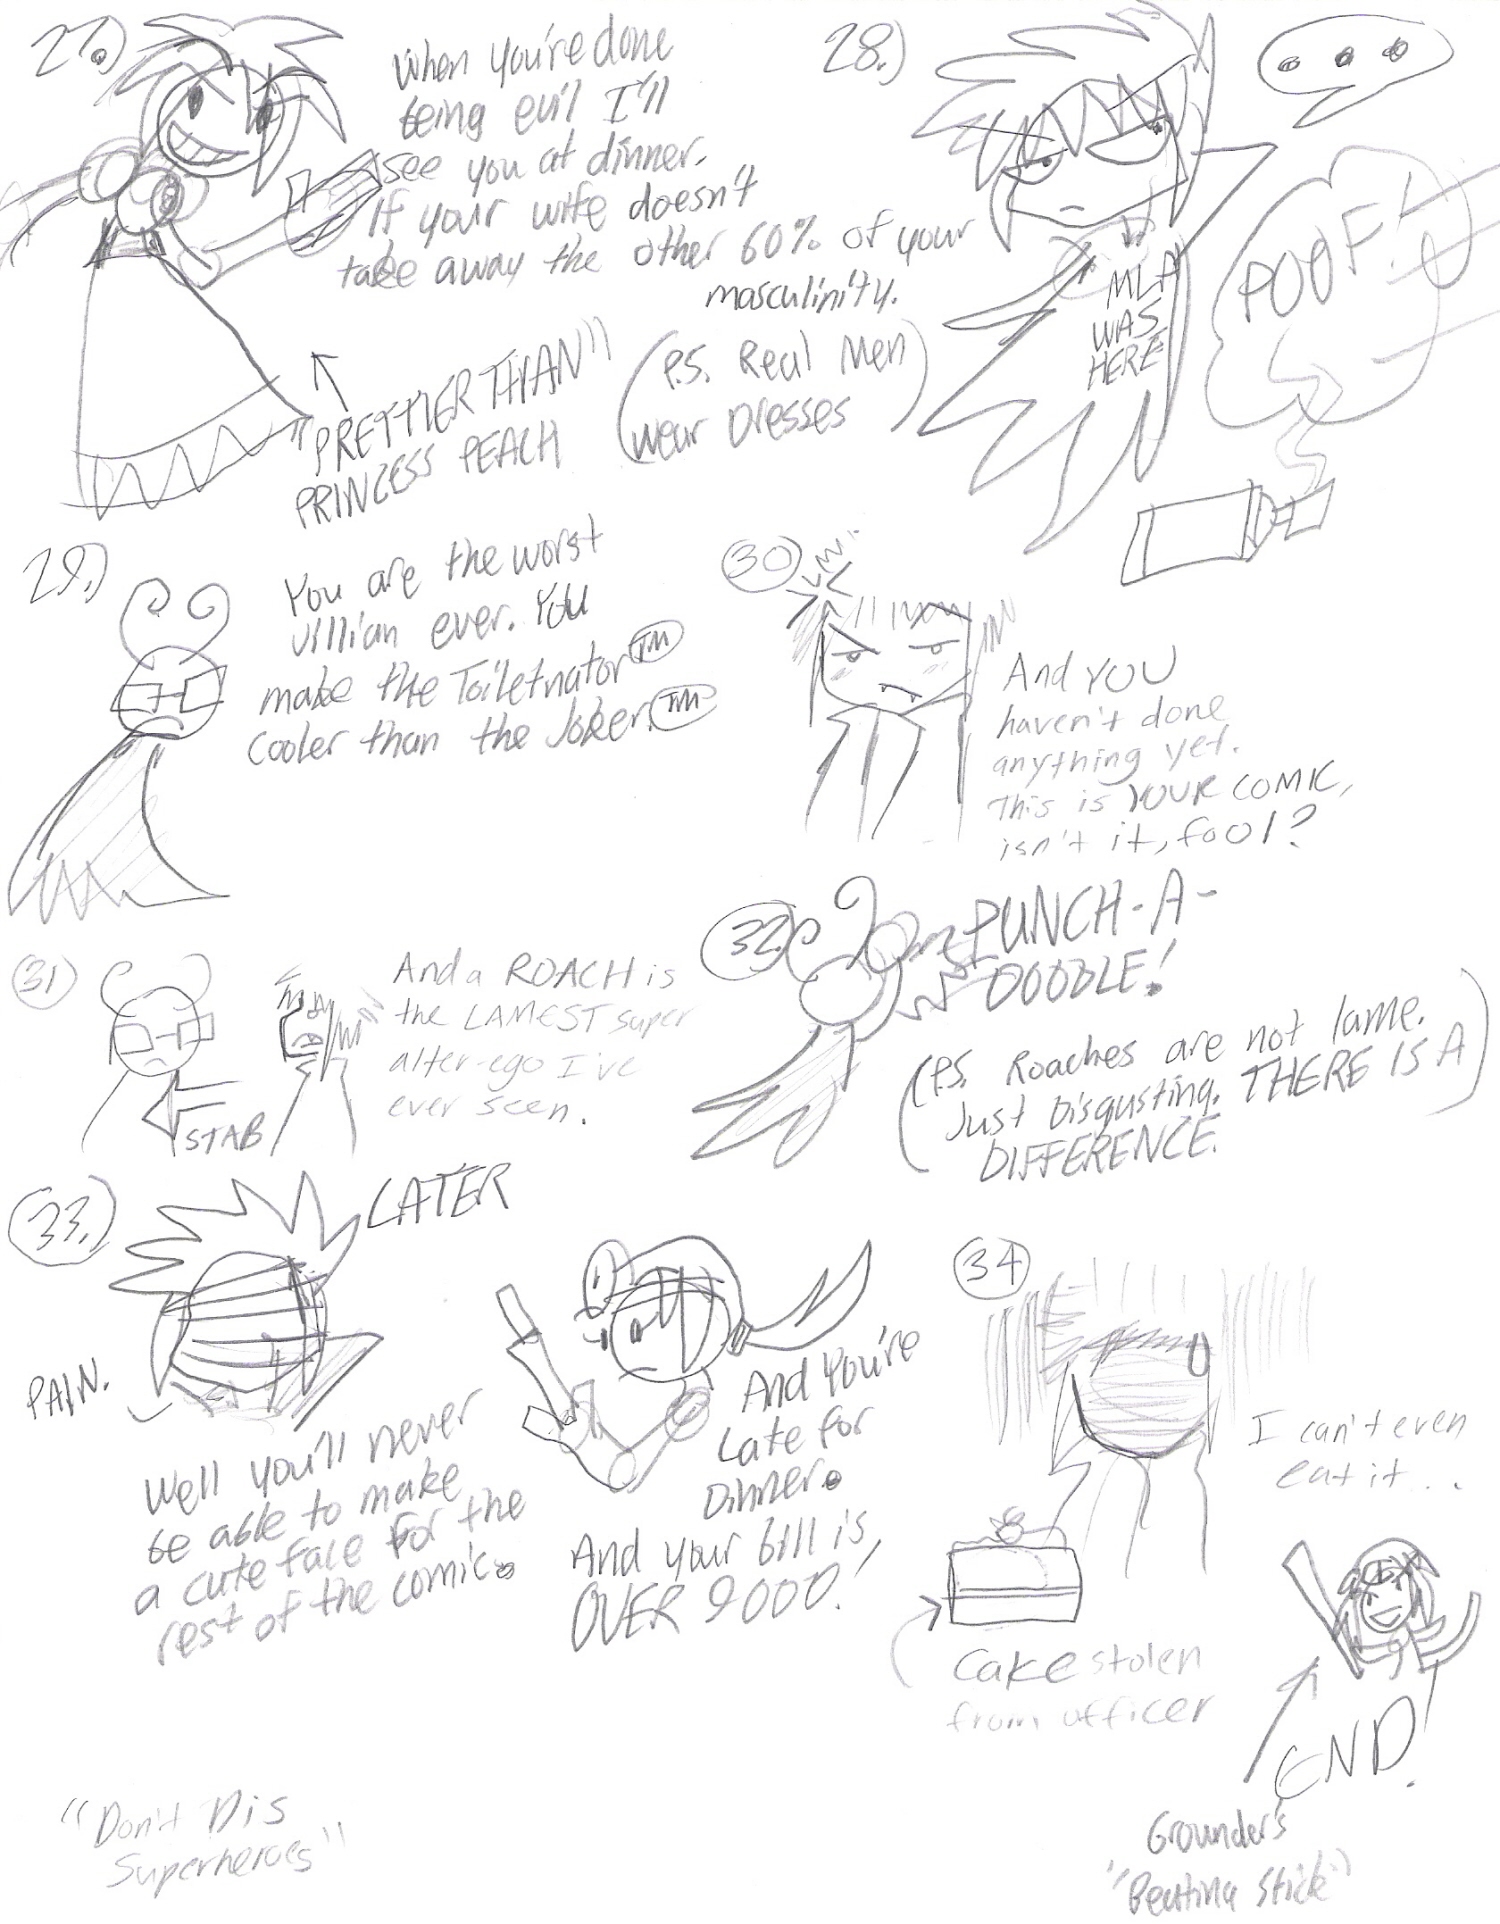 27.)
When you're done
being evil I'll
see you at dinner.
If your wife doesn't
take away the other 60% of your
masculinity.
(P.S. Real Men
wear Dresses)
PRETTIER THAN
PRINCESS PEACH
28.)
...
MLA
WAS
HERE
POOF!
29.)
You are the worst
villian ever. You
make the Toiletnator TM
cooler than the Joker. TM
30
And YOU
haven't done
anything yet.
This is YOUR COMIC,
isn't it, fool?
31
And a ROACH is
the LAMEST super
alter-ego I've
ever seen.
STAB
32.
PUNCH-A-
DOODLE!
(P.S. Roaches are not lame.
Just Disgusting. THERE IS A
DIFFERENCE.)
33.
LATER
PAIN.
Well you'll never
be able to make
a cute face for the
rest of the comic.
And You're
Late for
Dinner.
And your bill is
OVER 9000!
34
I can't even
eat it...
Cake stolen
from officer
END!
Grounder's
"Beating Stick"
"Don't Dis
Superheroes"